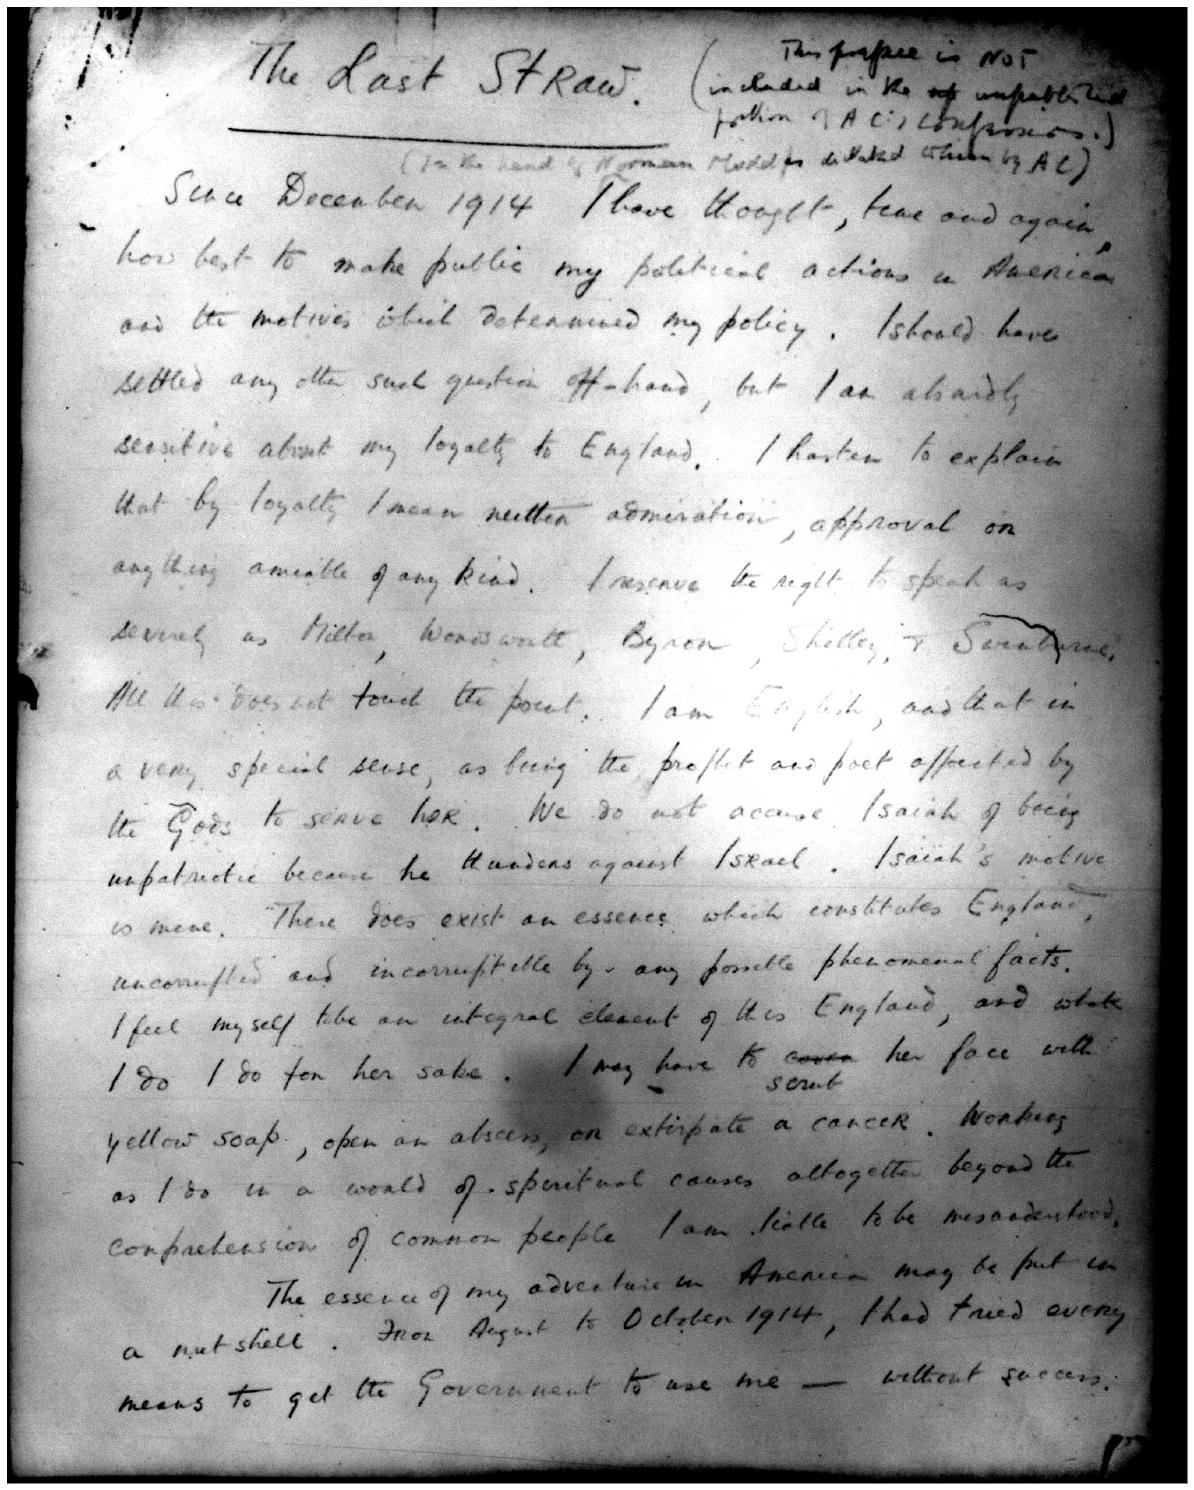 The Last Straw.
(This preface is NOT
included in the unpublished
portion of A C's Confessions.)
(In the hand of Norman Mudd as dictated to him by AC)
Since December 1914 I have thought, time and again,
how best to make public my political actions in America
and the motives which determined my policy. I should have
settled any other such question off-hand, but I am absurdly
sensitive about my loyalty to England. I hasten to explain
that by loyalty I mean neither admiration, approval or
anything amiable of any kind. I reserve the right to speak as
severely as Milton, Wordsworth, Byron, Shelley, & Swinburne.
All this does not touch the point. I am English, and that in
a very special sense, as being the prophet and poet appointed by
the Gods to serve her. We do not accuse Isaiah of being
unpatriotic because he thunders against Israel. Isaiah's motive
is mine. There does exist an essence which constitutes England,
uncorrupted and incorruptible by any possible phenomenal facts.
I feel myself to be an integral element of this England, and what
I do I do for her sake. I may have to cover her face with
scrub
yellow soap, open an abscess, or extirpate a cancer. Working
as I do in a world of spiritual causes altogether beyond the
comprehension of common people I am liable to be misunderstood.
The essence of my adventure in America may be put in
a nutshell. From August to October 1914, I had tried every
means to get the Government to use me — without success.